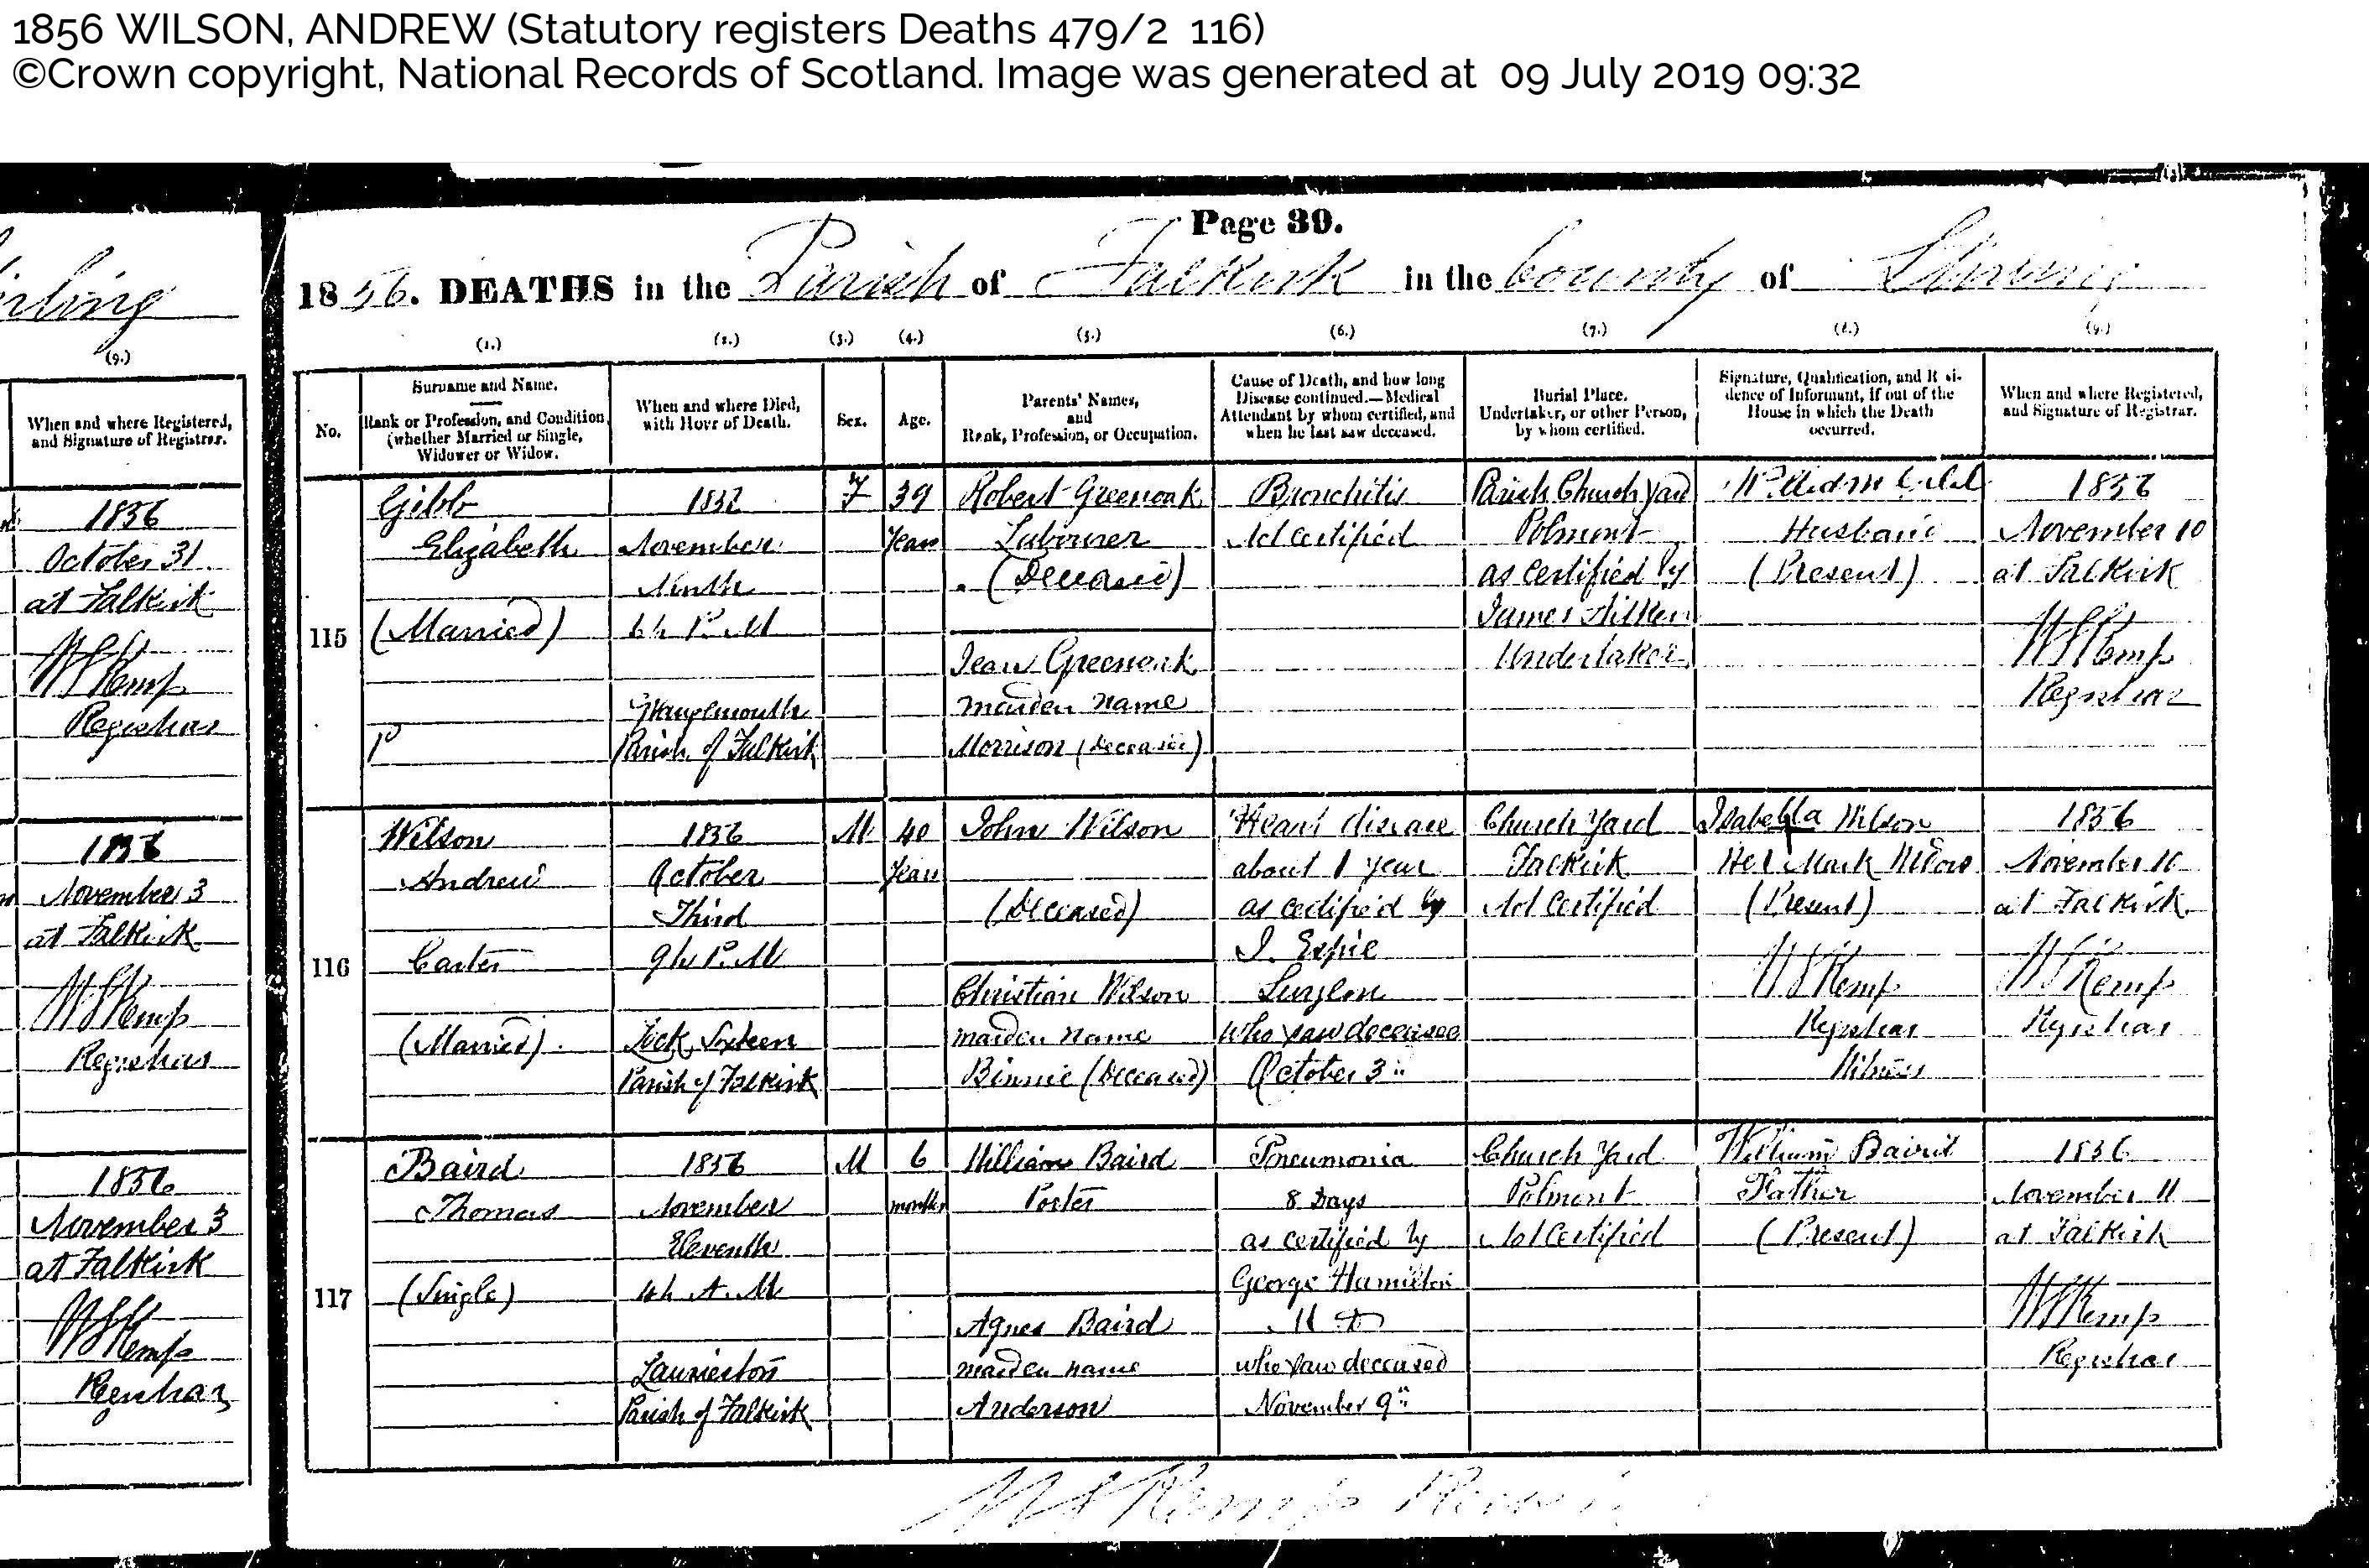 1856 WILSON, ANDREW (Statutory registers Deaths 479/2 116)
©Crown copyright, National Records of Scotland. Image was generated at 09 July 2019 09:32
Page 39.
1856. DEATHS in the Parish of Falkirk in the County of Stirling
(1.) (2.) (3.) (4.) (5.) (6.) (7.) (8.) (9.)
No.
Surname and Name.
Rank or Profession, and Condition
(whether Married or Single,
Widower or Widow.
When and where Died,
with Hour of Death.
Sex.
Age.
Parents' Names,
and
Rank, Profession, or Occupation.
Cause of Death, and how long
Disease continued.—Medical
Attendant by whom certified, and
when he last saw deceased.
Burial Place.
Undertaker, or other Person,
by whom certified.
Signature, Qualification, and Resi-
dence of Informant, if out of the
House in which the Death
occurred.
When and where Registered,
and Signature of Registrar.
115
Gibb
Elizabeth
(Married)
P
1856
November
Ninth
6h P.M
Grangemouth
Parish of Falkirk
F
39
Years
Robert Greenoak
Labourer
(Deceased)
Jean Greenoak
maiden name
Morrison (Deceased)
Bronchitis
Not Certified
Parish Church Yard
Polmont
as certified by
James Aitken
Undertaker
Husband
(Present)
1856
November 10
at Falkirk
W S Kemp
Registrar
116
Wilson
Andrew
Carter
(Married).
1856
October
Third
9h P.M
Lock Sixteen
Parish of Falkirk
M
40
Years
John Wilson
(Deceased)
Christian Wilson
maiden name
Binnie (Deceased)
Heart disease
about 1 year
as certified by
Surgeon
who saw deceased
October 3"
Church Yard
Falkirk
Not Certified
Isabella Wilson
Her Mark Widow
(Present)
W S Kemp
Registrar
Witness
1856
November 10
at Falkirk
W S Kemp
Registrar
117
Baird
Thomas
(Single)
1856
November
Eleventh
4h A.M
Laurieston
Parish of Falkirk
M
6
months
William Baird
Porter
Agnes Baird
maiden name
Anderson
Pneumonia
8 Days
as certified by
George Hamilton
M D
who saw deceased
November 9"
Church Yard
Polmont
Not Certified
William Baird
Father
(Present)
1856
November 11
at Falkirk
W S Kemp
Registrar
W S Kemp
(9.)
When and where Registered,
and Signature of Registrar.
1856
October 31
at Falkirk
W S Kemp
Registrar
1856
November 3
at Falkirk
W S Kemp
Registrar
1856
November 3
at Falkirk
W S Kemp
Registrar